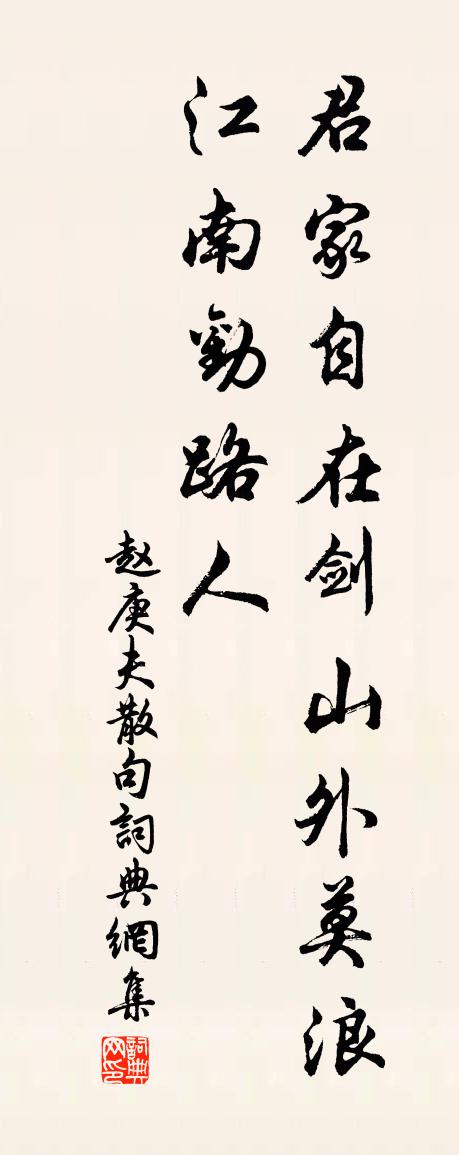 君家自在剑山外莫浪
江南勸路人
赵庚夫散句詞典網集
詞典网印